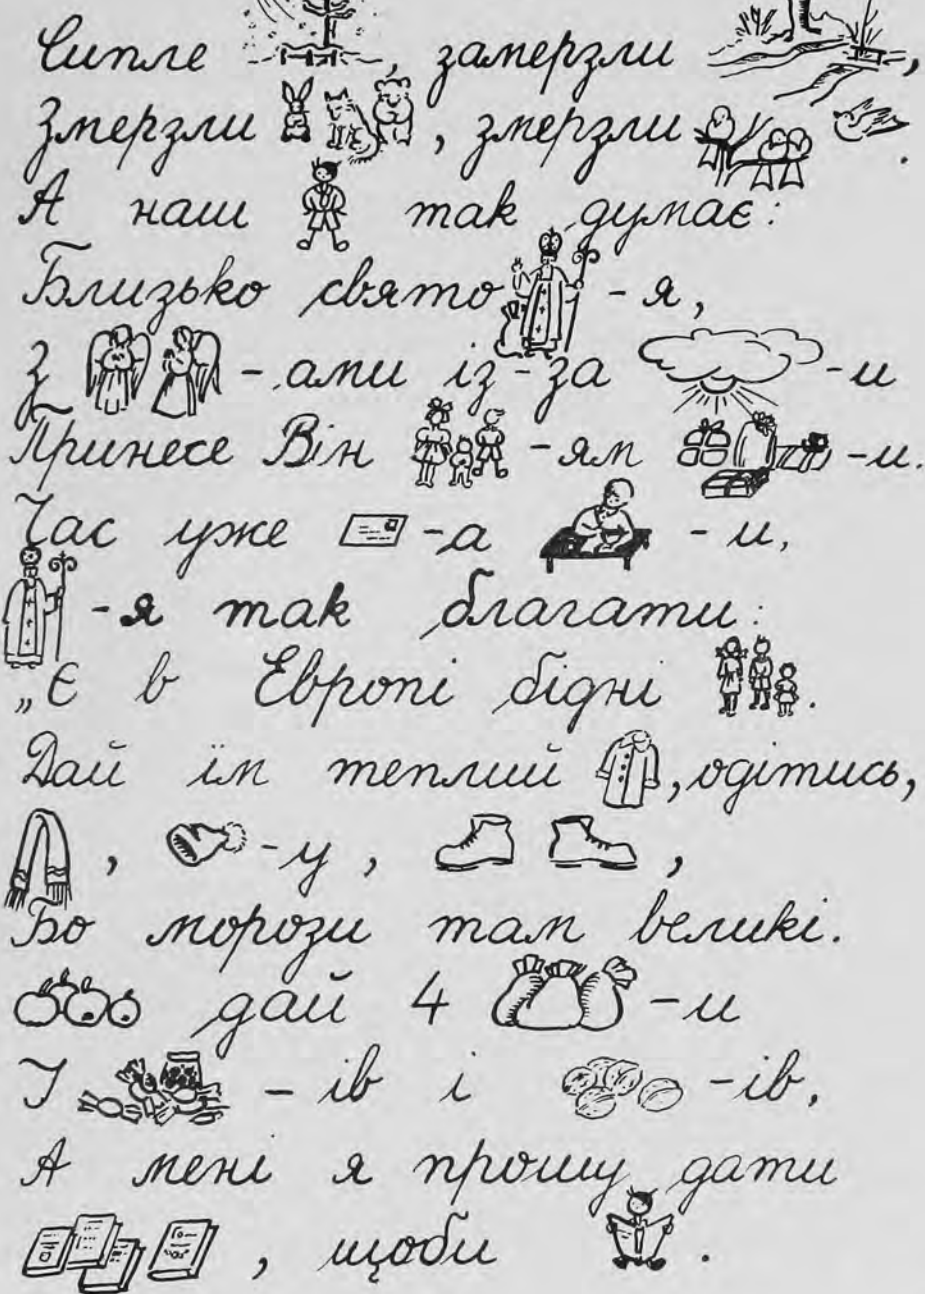 Сипле , замерзли ,
Змерзли , змерзли .
А наш так думає:
Близько свято -я,
З -ами із-за -и
Принесе Він -ям -и.
Час уже -а -и,
-я так благати:
„Є в Европі бідні .
Дай їм теплий , одітись,
, -у , ,
Бо морози там великі.
дай 4 -и
І -ів і -ів,
А мені я прошу дати
, щоби .